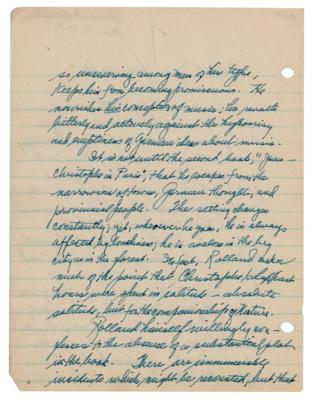 so unswerving among men of his type,
keeps him from becoming promiscuous. He
nourishes his conception of music; he revolts
bitterly and actively against the hypocrisy
and emptiness of German ideas about music.
It is not until the second book, "Jean-
Christophe in Paris", that he escapes from the
narrowness of town, German thought, and
provincial people. The setting changes
constantly; yet, wherever he goes, he is always
affected by loneliness; he is as alone in the big
city as in the forest. In fact, Rolland makes
much of the point that Christophe's happiest
hours were spent in solitude - absolute
solitude, but for the companionship of Nature.
Rolland himself willingly con-
fesses to the absence of a substantial plot
in the book. There are innumerable
incidents which might be recounted, but that